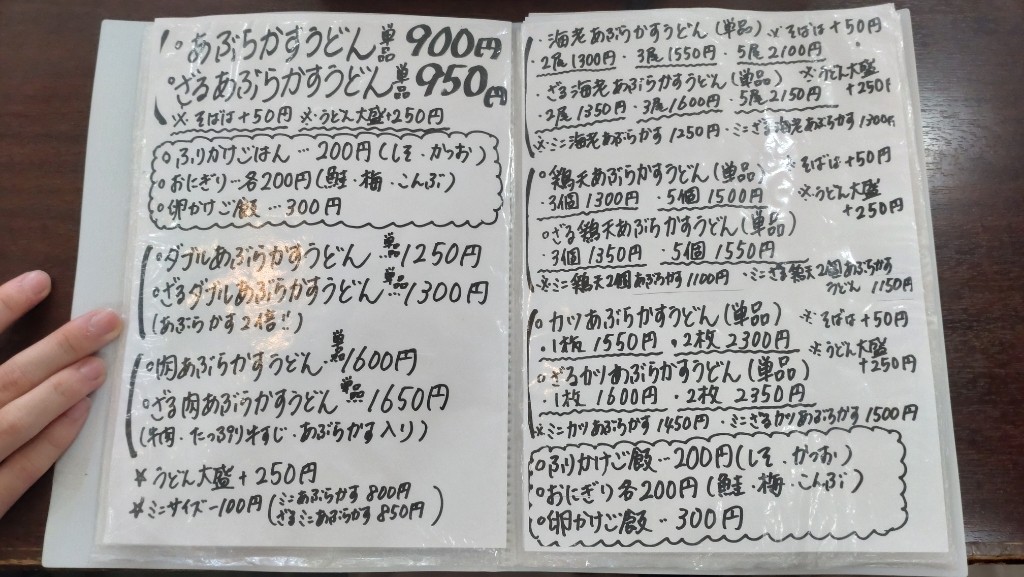 ○あぶらかすうどん 単品 900円
○ざるあぶらかすうどん 単品 950円
※そばは+50円 ※うどん大盛+250円
○ふりかけごはん…200円(しそ・かつお)
○おにぎり…各200円(鮭・梅・こんぶ)
○卵かけご飯…300円
○ダブルあぶらかすうどん 単品 1250円
○ざるダブルあぶらかすうどん 単品 1300円
(あぶらかす2倍!!)
○肉あぶらかすうどん 単品 1600円
○ざる肉あぶらかすうどん 単品 1650円
(牛肉・たっぷり牛すじ・あぶらかす入り)
☆うどん大盛+250円
☆ミニサイズ-100円(ミニあぶらかす800円
ざるミニあぶらかす850円)
・海老あぶらかすうどん(単品) ※そばは+50円
・2尾1300円 ・3尾1550円 ・5尾2100円
・ざる海老あぶらかすうどん(単品) ※うどん大盛
・2尾1350円 ・3尾1600円 ・5尾2150円 +250円
※ミニ海老あぶらかす1250円 ・ミニざる海老あぶらかす1300円
○鶏天あぶらかすうどん(単品) ※そばは+50円
・3個1300円 ・5個1500円 ※うどん大盛
+250円
○ざる鶏天あぶらかすうどん(単品)
・3個1350円 ・5個1550円
※ミニ鶏天2個あぶらかす1100円 ・ミニざる鶏天2個あぶらかす
うどん1150円
○カツあぶらかすうどん(単品) ※そばは+50円
・1枚1550円 ・2枚2300円 ※うどん大盛
+250円
○ざるカツあぶらかすうどん(単品)
・1枚1600円 ・2枚2350円
※ミニカツあぶらかす1450円 ・ミニざるカツあぶらかす1500円
○ふりかけご飯…200円(しそ・かつお)
○おにぎり各200円(鮭・梅・こんぶ)
○卵かけご飯…300円